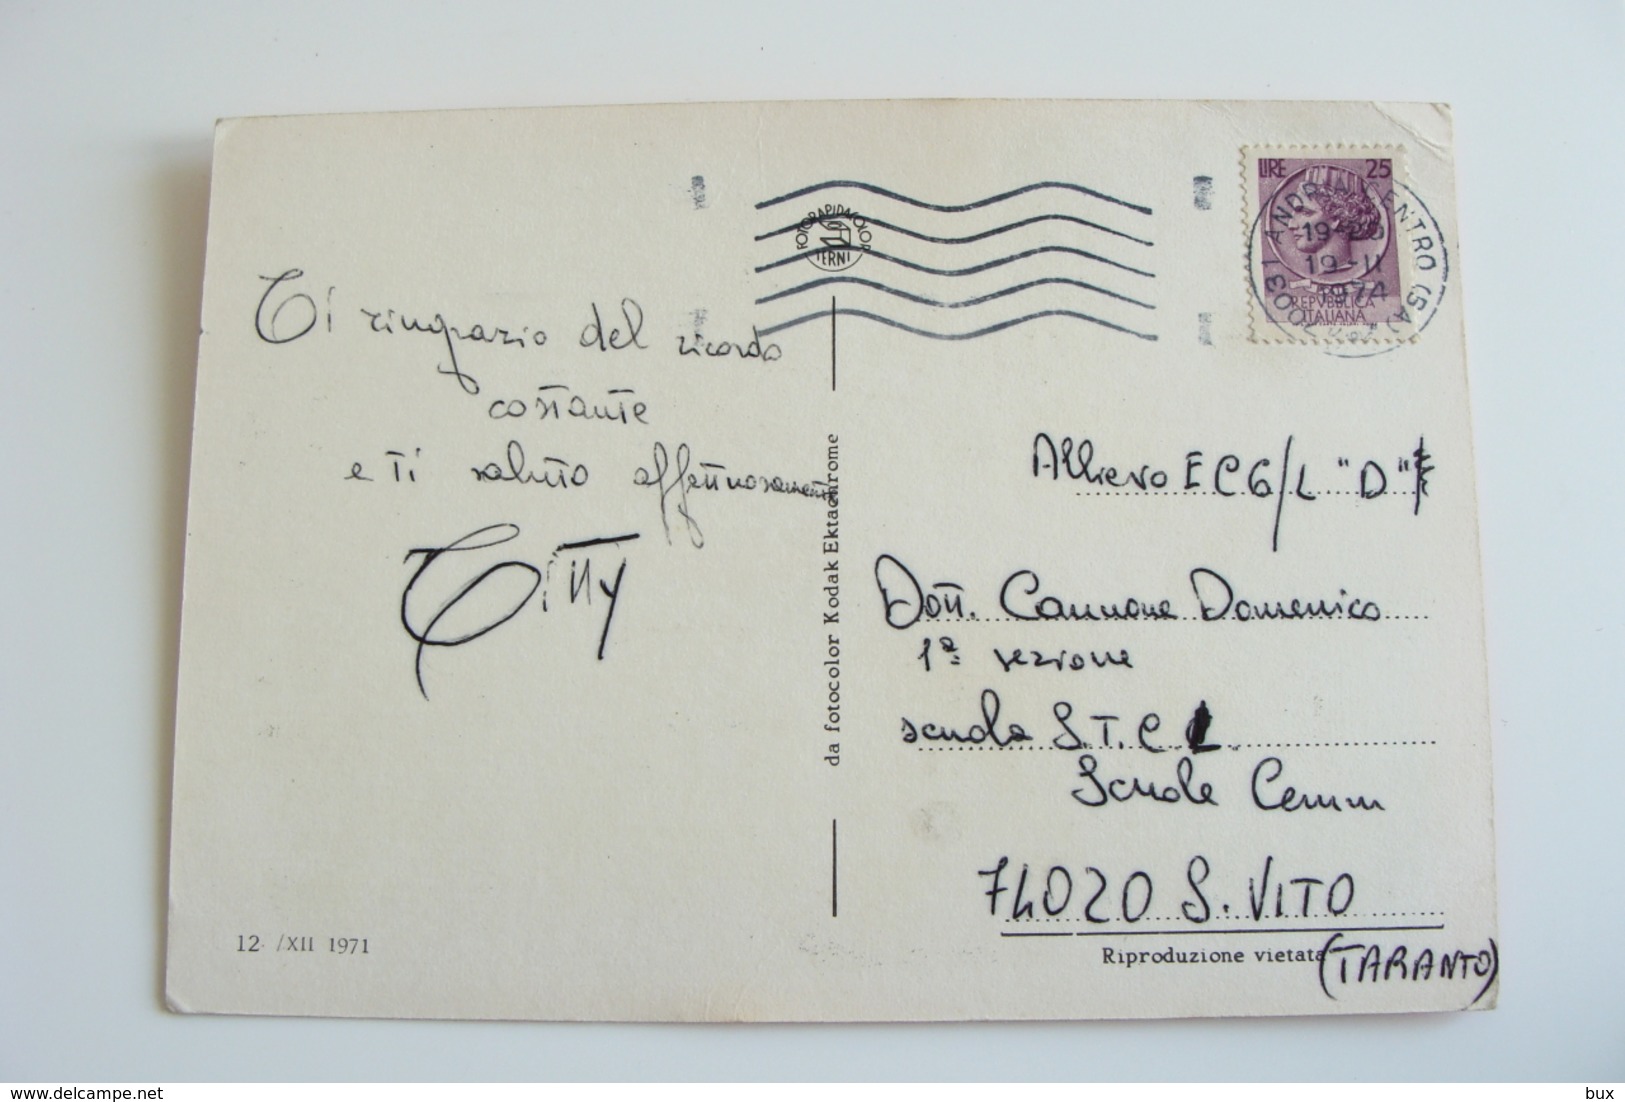 Ti ringrazio del ricordo
costante
e Ti saluto affettuosamente
Titty
12 /XII 1971
FOTORAPIDACOLOR
TERNI
da fotocolor Kodak Ektachrome
LIRE 25
REPVBBLICA
ITALIANA
CENTRO (SA)
19-20
19-II
1974
Allievo E C G/L "D"
Dott. Cannone Domenico
1ª sezione
scuola S.T.C L
Scuole Cemm
74020 S. VITO
Riproduzione vietata
(TARANTO)
https://www.delcampe.net
bux